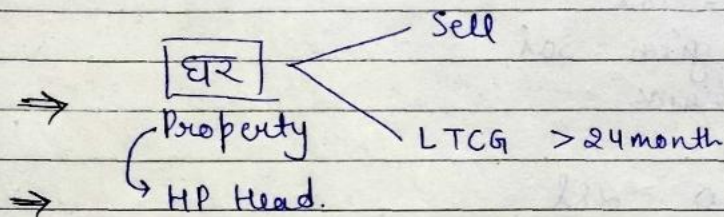 Sell
घर
⇒ Property
LTCG > 24 month
⇒ HP Head.